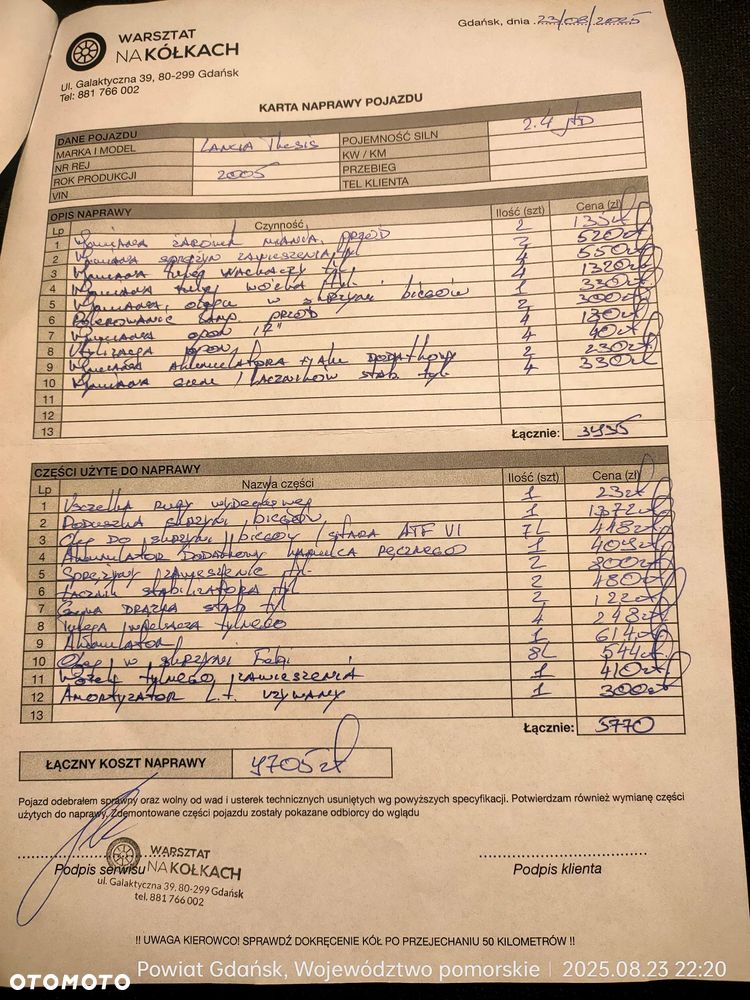 WARSZTAT
NA KÓŁKACH
Ul. Galaktyczna 39, 80-299 Gdańsk
Tel: 881 766 002
Gdańsk, dnia 23/08/2025
KARTA NAPRAWY POJAZDU
DANE POJAZDU
MARKA I MODEL LANCIA Thesis
NR REJ
ROK PRODUKCJI 2005
VIN
POJEMNOŚĆ SILN 2.4 jtD
KW / KM
PRZEBIEG
TEL KLIENTA
OPIS NAPRAWY
Lp Czynność Ilość (szt) Cena (zł)
1 Wymiana żarówek przód 2 135zł
2 Wymiana sprężyn zawieszenia tył 2 520zł
3 Wymiana tulei wahaczy tył 4 550zł
4 Wymiana tulei wózka tył 4 1320zł
5 Wymiana oleju w skrzyni biegów 1 330zł
6 Polerowanie lamp przód 2 300zł
7 Wymiana opon 17" 4 180zł
8 Utylizacja opon 4 40zł
9 Wymiana akumulatora + akum dodatkowy 2 230zł
10 Wymiana gum / łączników stab. tył 4 330zł
11
12
13
Łącznie:
CZĘŚCI UŻYTE DO NAPRAWY
Lp Nazwa części Ilość (szt) Cena (zł)
1 Uszczelka rury wydechowej 1 23zł
2 Poduszka skrzyni biegów 1 1372zł
3 Olej do skrzyni biegów / stara ATF VI 7L 448zł
4 Akumulator dodatkowy hamulca ręcznego 1 409zł
5 Sprężyny zawieszenie tył 2 800zł
6 Łącznik stabilizatora tył 2 480zł
7 Guma drążka stab tył 2 122zł
8 Tuleja wahacza tylnego 4 248zł
9 Akumulator 1 614zł
10 Olej w skrzyni 8L 544zł
11 Wózek tylnego zawieszenia 1 410zł
12 Amortyzator L.T. używany 1 300zł
13
Łącznie: 5770
ŁĄCZNY KOSZT NAPRAWY 9705zł
Pojazd odebrałem sprawny oraz wolny od wad i usterek technicznych usuniętych wg powyższych specyfikacji. Potwierdzam również wymianę części
użytych do naprawy. Zdemontowane części pojazdu zostały pokazane odbiorcy do wglądu
WARSZTAT
NA KÓŁKACH
ul. Galaktyczna 39, 80-299 Gdańsk
tel. 881 766 002
Podpis serwisu
Podpis klienta
!! UWAGA KIEROWCO! SPRAWDŹ DOKRĘCENIE KÓŁ PO PRZEJECHANIU 50 KILOMETRÓW !!
OTOMOTO
Powiat Gdańsk, Województwo pomorskie | 2025.08.23 22:20